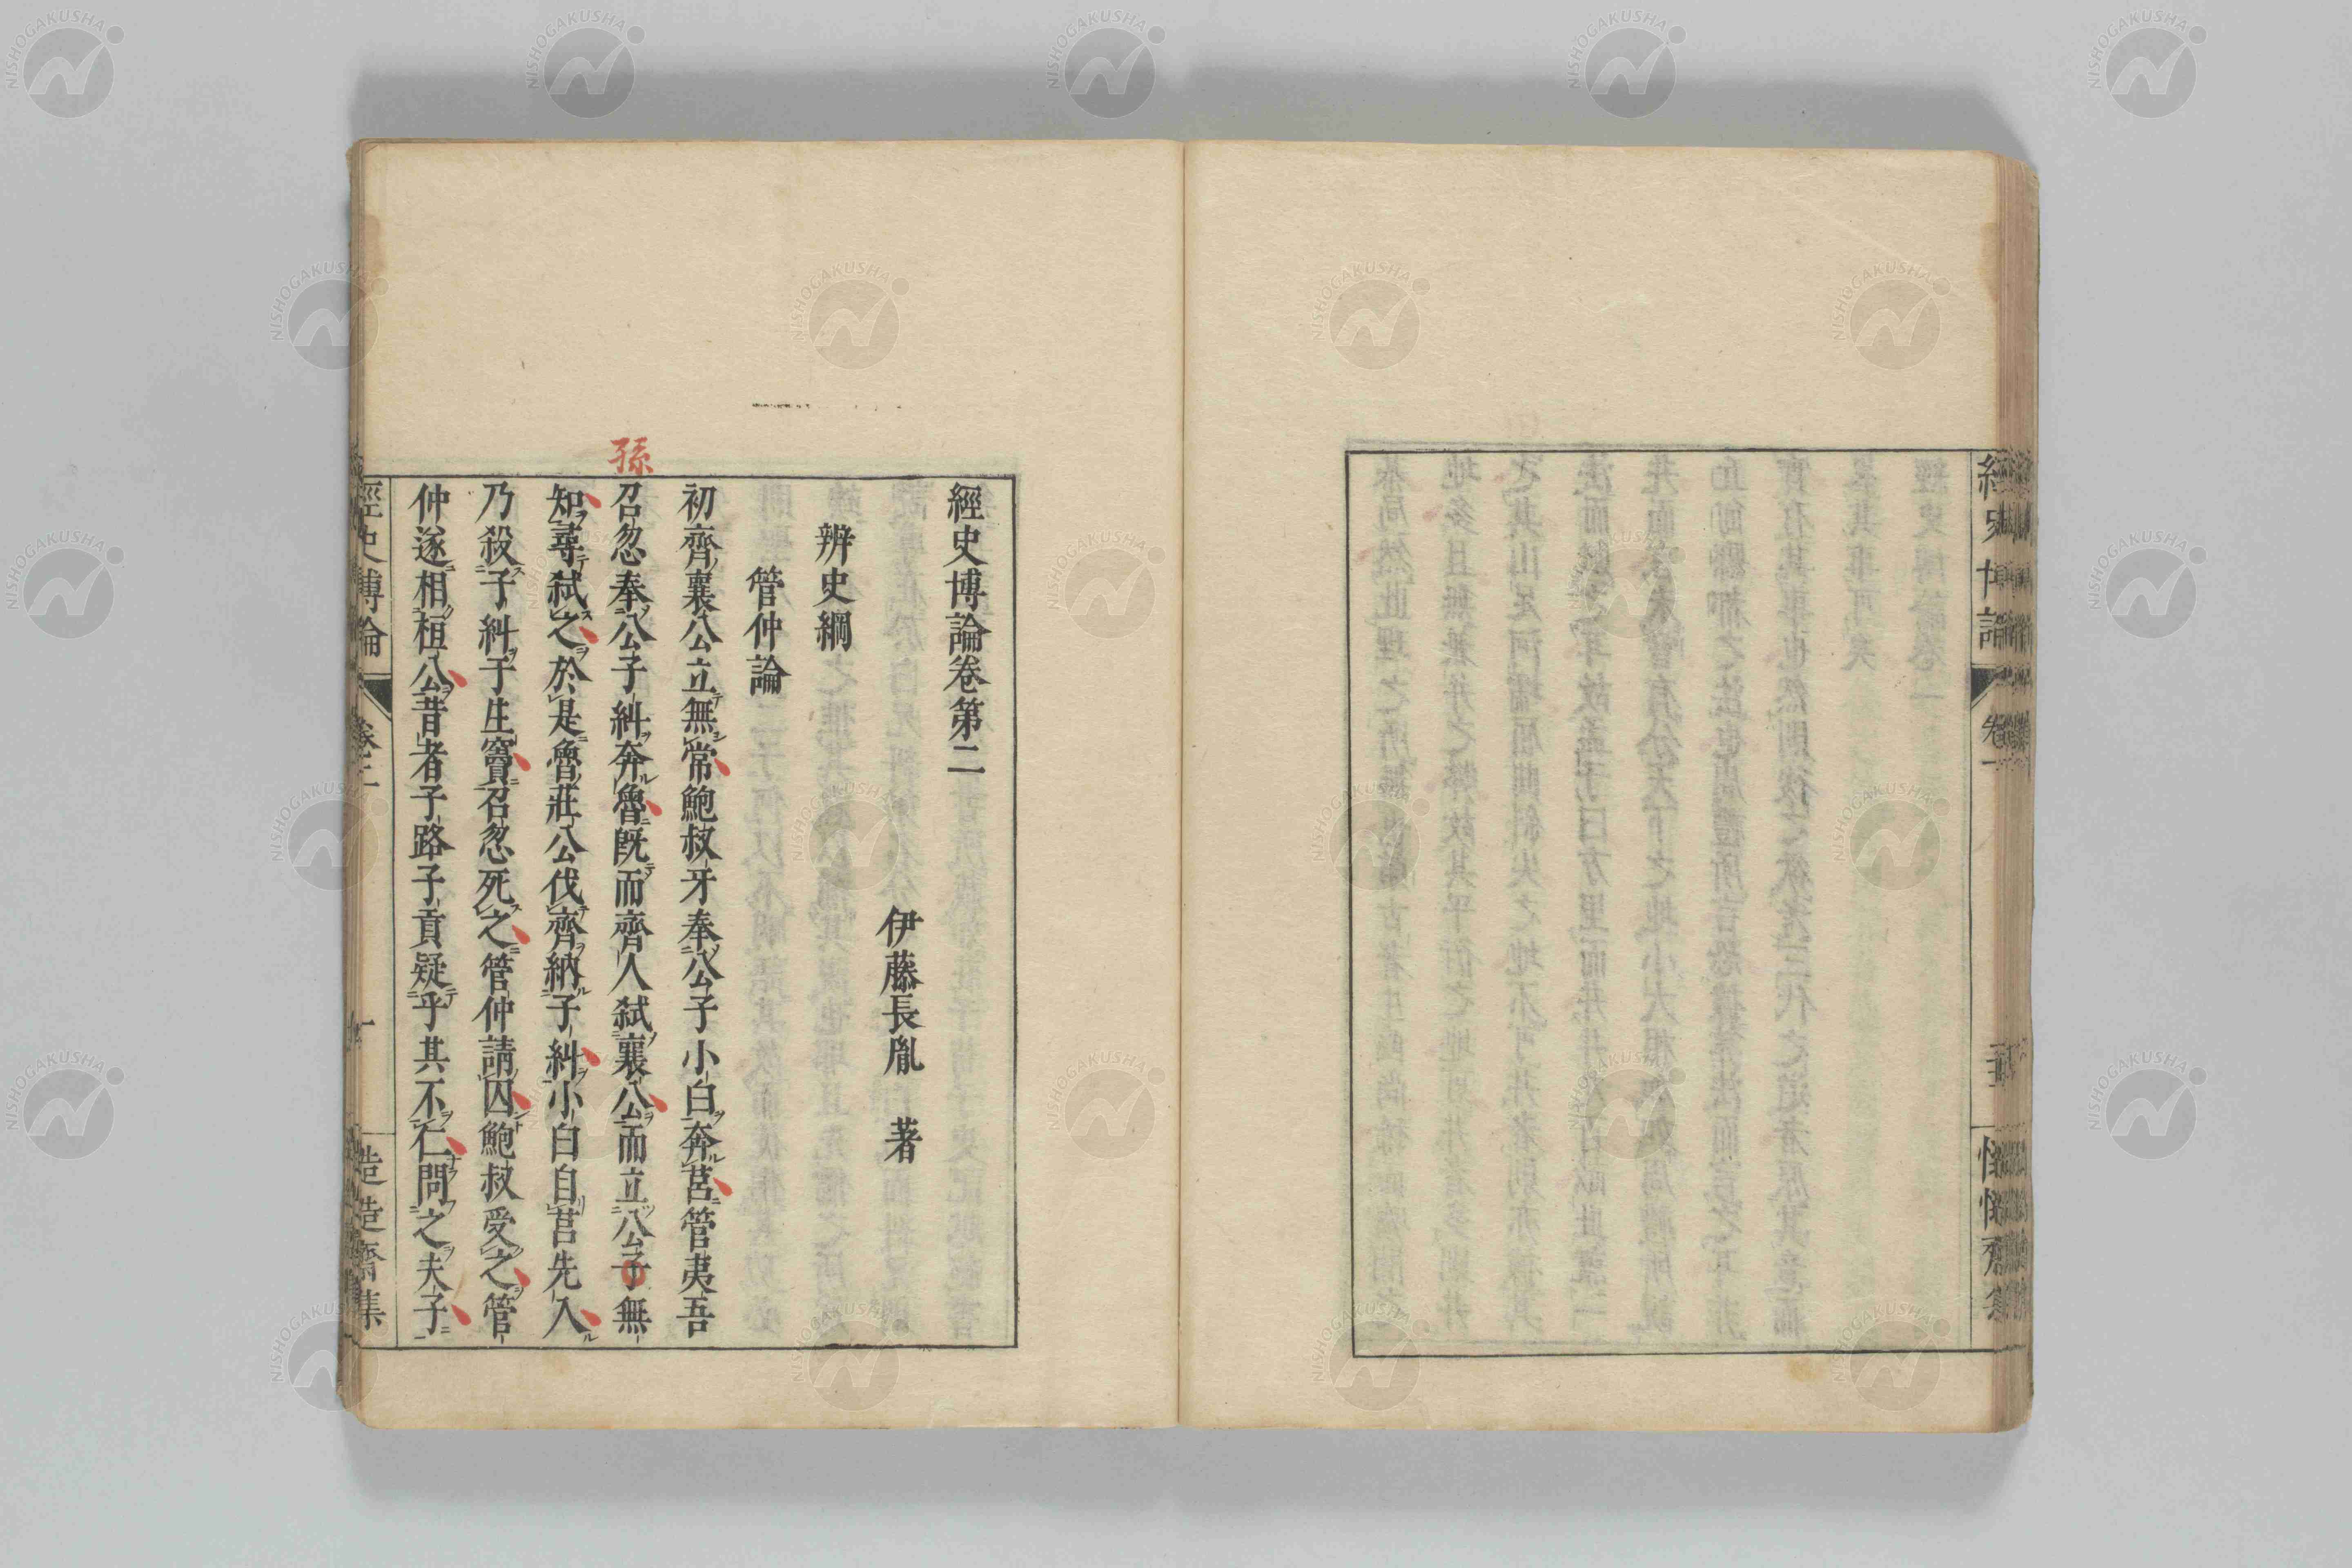 經史博論
卷一
經史博論卷第二
伊藤長胤 著
辨史綱
管仲論
初齊襄公立無常鮑叔牙奉公子小白奔莒管夷吾
孫
召忽奉公子糾奔魯既而齊人弑襄公而立公子無
知尋弑之於是魯莊公伐齊納子糾小白自莒先入
乃殺子糾于生竇召忽死之管仲請囚鮑叔受之管
仲遂相桓公昔者子路子貢疑乎其不仁問之夫子
經史博論
卷二
一
NISHOGAKUSHA